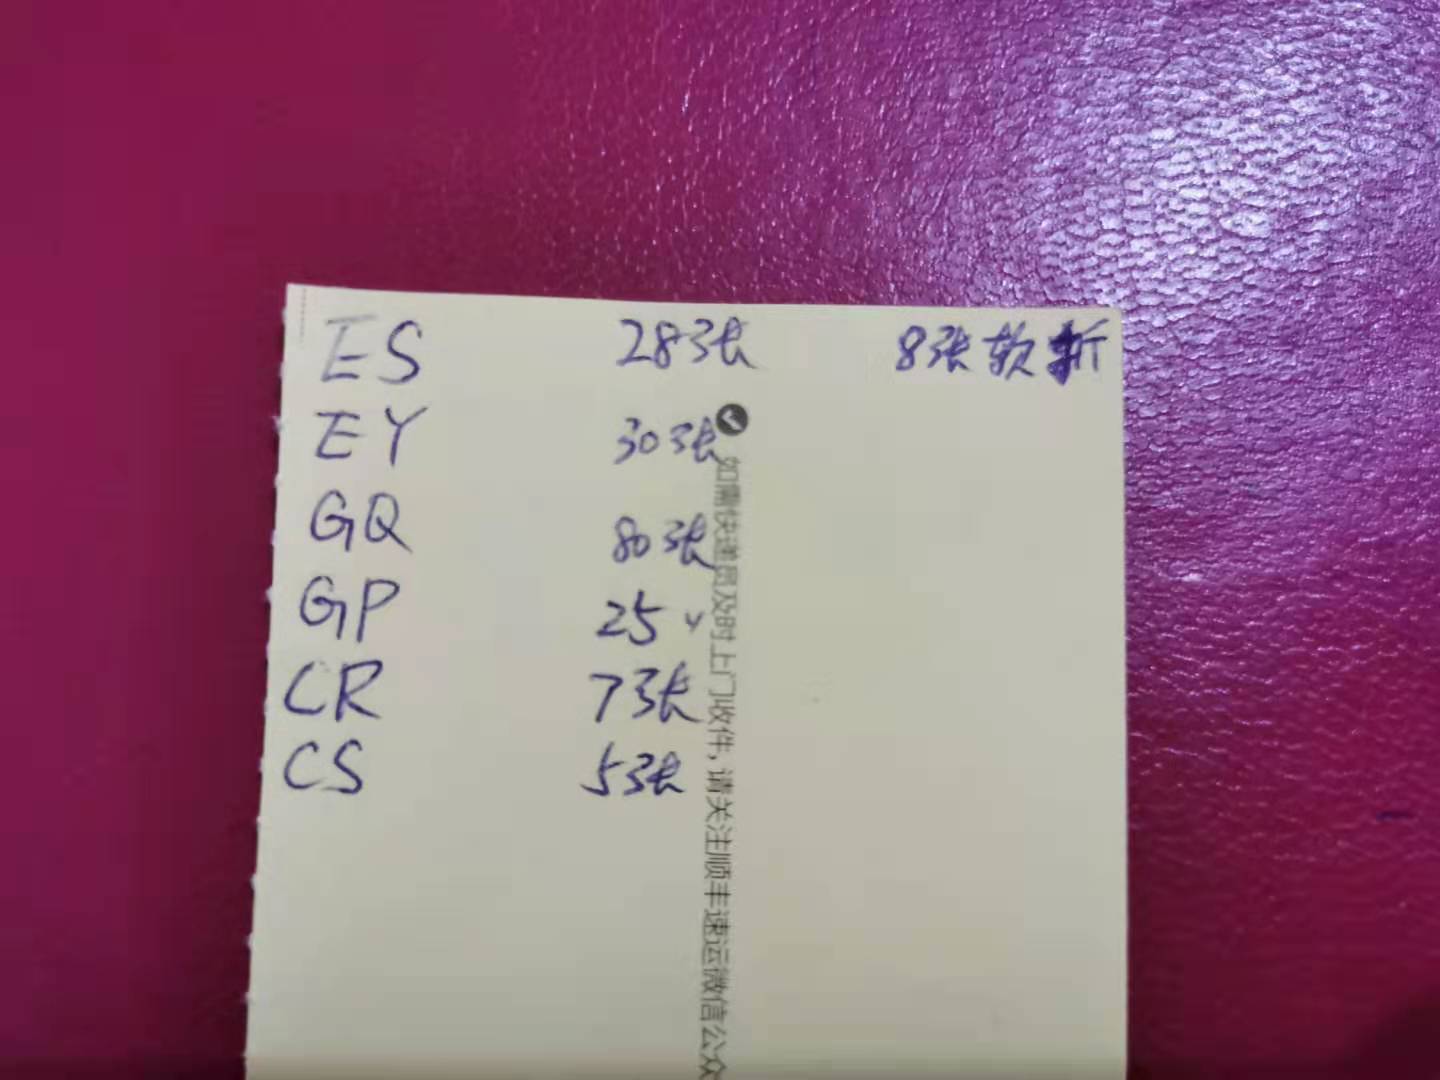 ES 28张 8张软折
EY 30张
GQ 80张
GP 25 v
CR 7张
CS 5张
如需快递员及时上门收件，请关注顺丰速运微信公众